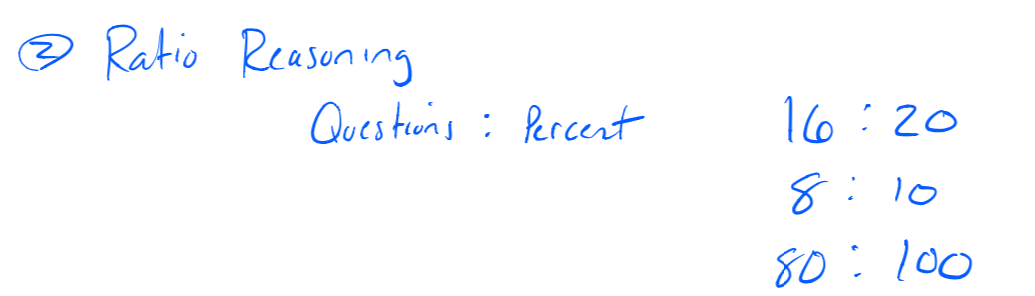 ② Ratio Reasoning
Questions : Percent 16 : 20
8 : 10
80 : 100